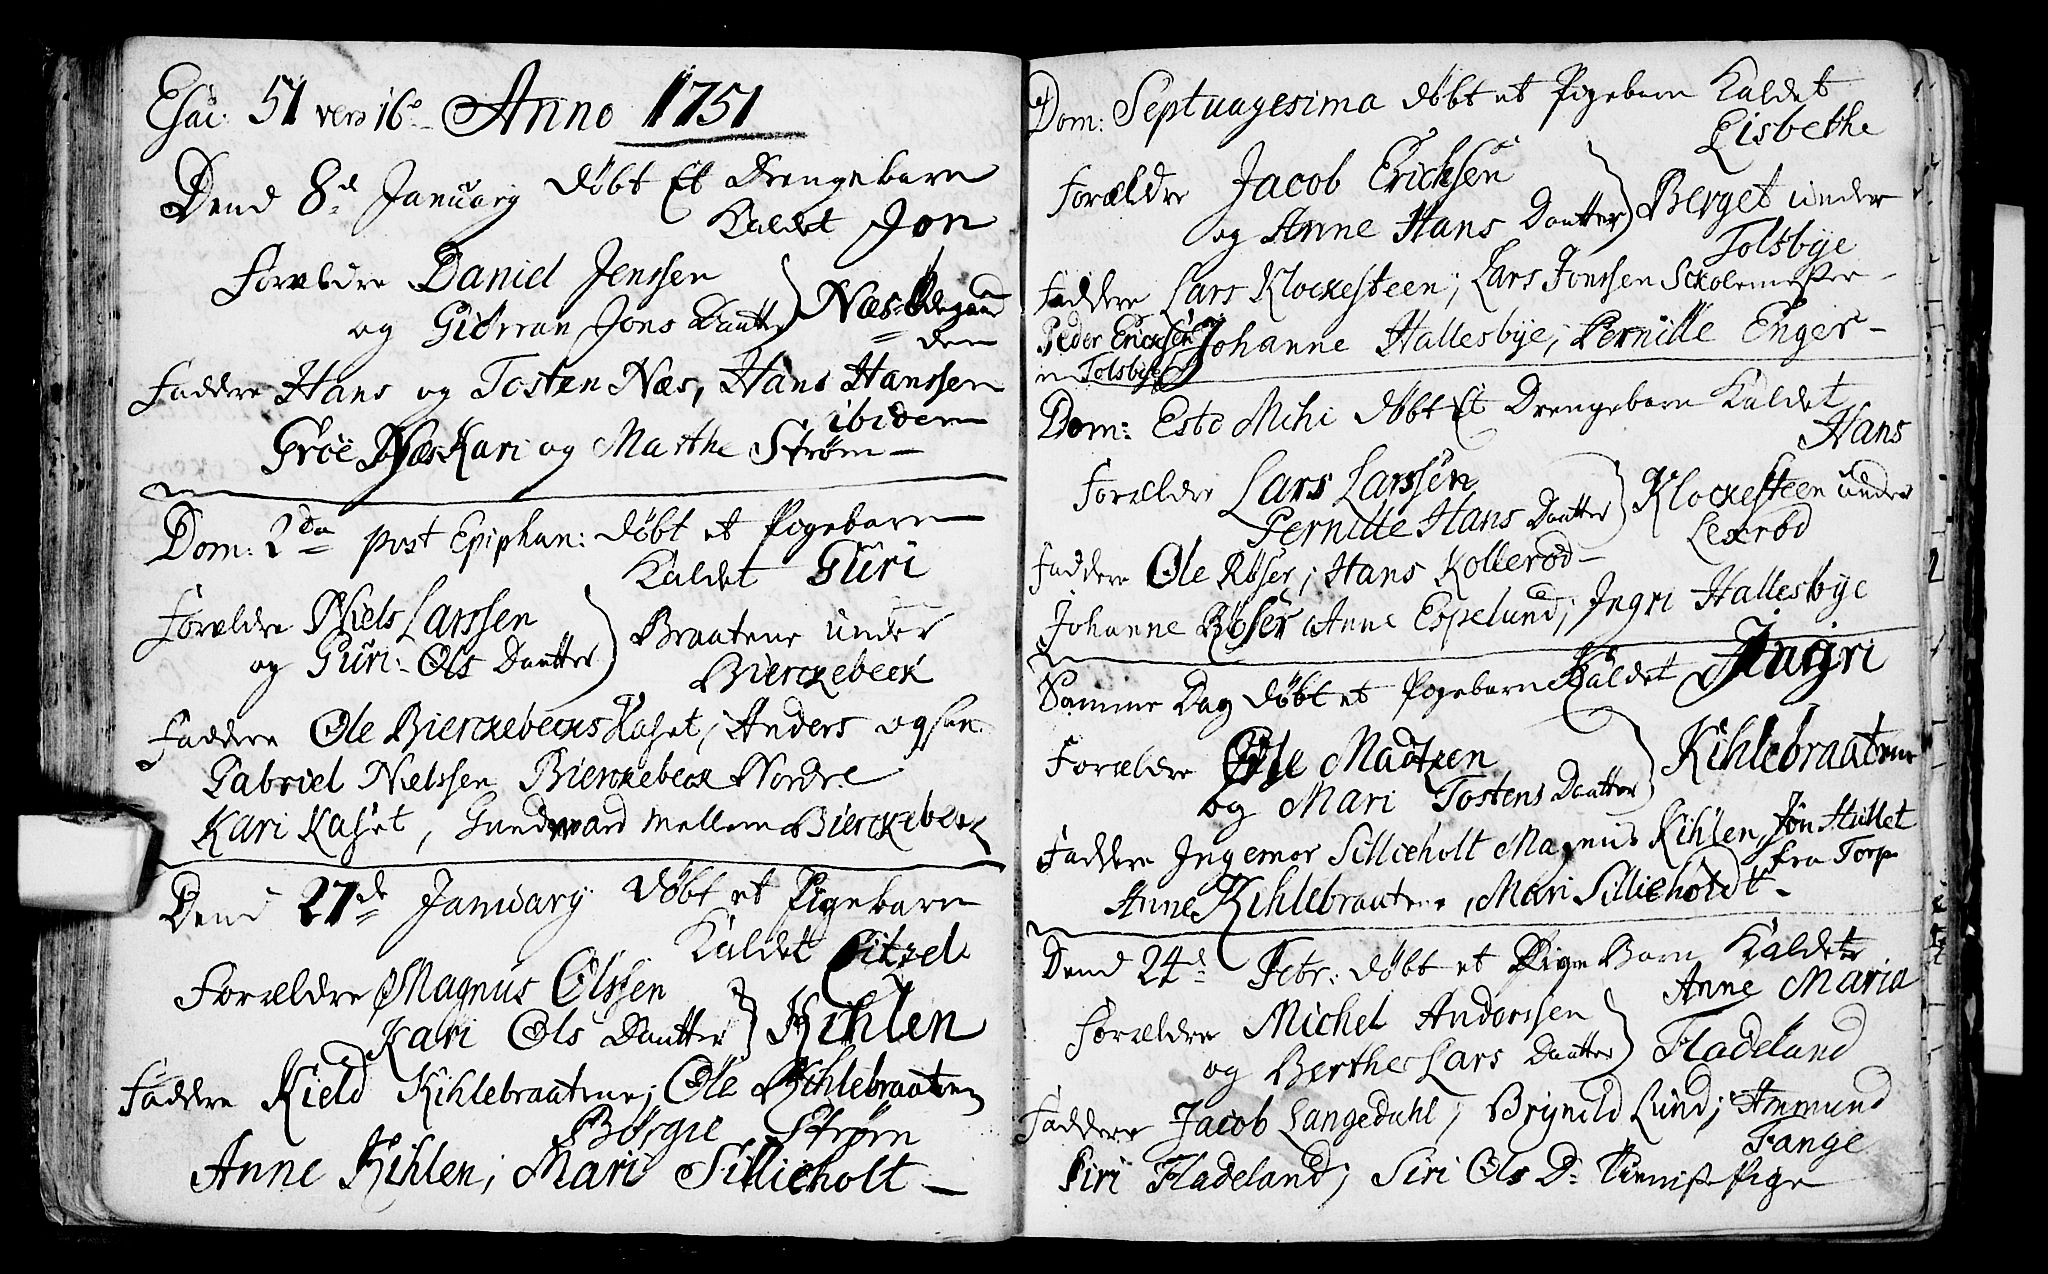 Esai: 51 vers 16. Anno 1751
Dend 8d January döbt Et Drengebarn
Kaldet Jon
Forældre Daniel Jenssen
og Gunran Jons Daatter } Næs Ödegaard
= den
Faddere Hans og Tosten Næs, Hans Hanssen
ibidem
Groe Næs Kari og Marthe Ström –
Dom: 2da post Epiphan: döbt et Pigebarn
Kaldet Guri
Forældre Niels Larssen
og Guri Ols Daatter } Braatene under
Bierckebeck
Faddere Ole Bierckebecks Kaset, Anders
Gabriel Nielssen Bierckebeck Nordre
Kari Kaset, Gundvord Mellem Bierckebeck
Dend 27de January döbt et Pigebarn
Kaldet Citzel
Forældre Magnus Olssen
Kari Ols Daatter } Kihlen
Faddere Kield Kihlebraatene; Ole Kihlebraaten
Börgie Ström
Anne Kihlen; Mari Sillieholt –
Dom: Septuagesima döbt et Pigebarn Kaldet
Lisbethe
Forældre Jacob Erichsen
og Anne Hans Daatter } Berget under
Tolsbye
Faddere Lars Klockesteen; Lars Jonssen Skolemester –
Peder Erichsen Johanne Hallesbye; Pernille Enger –
in Tolsbye
Dom: Esto Mihi döbt Et Drengebarn Kaldet
Hans
Forældre Lars Larssen
Pernille Hans Daatter } Klockesteen under
Lexröd
Faddere Ole Röser; Hans Kolleröd –
Johanne Röser Anne Espelund; Ingri Hallesbye
Samme Dag döbt et Pigebarn Kaldet Jngri
Forældre Ole Madtzen
og Mari Tostens Daatter } Kihlebraatene
Faddere Ingemor Sillieholt Magnus Kihlen, Jon Stullet
fra Torp
Anne Kihlebraatene, Mari Sillieholdt –
Dend 24d Febr: döbt et Pige Barn Kaldet
Anne Maria
Forældre Michel Anderssen
og Berthe Lars Daatter } Fladeland
Faddere Jacob Langedahl; Brynild Lund; Ammund
Fange
Siri Fladeland; Siri Ols D: Pige